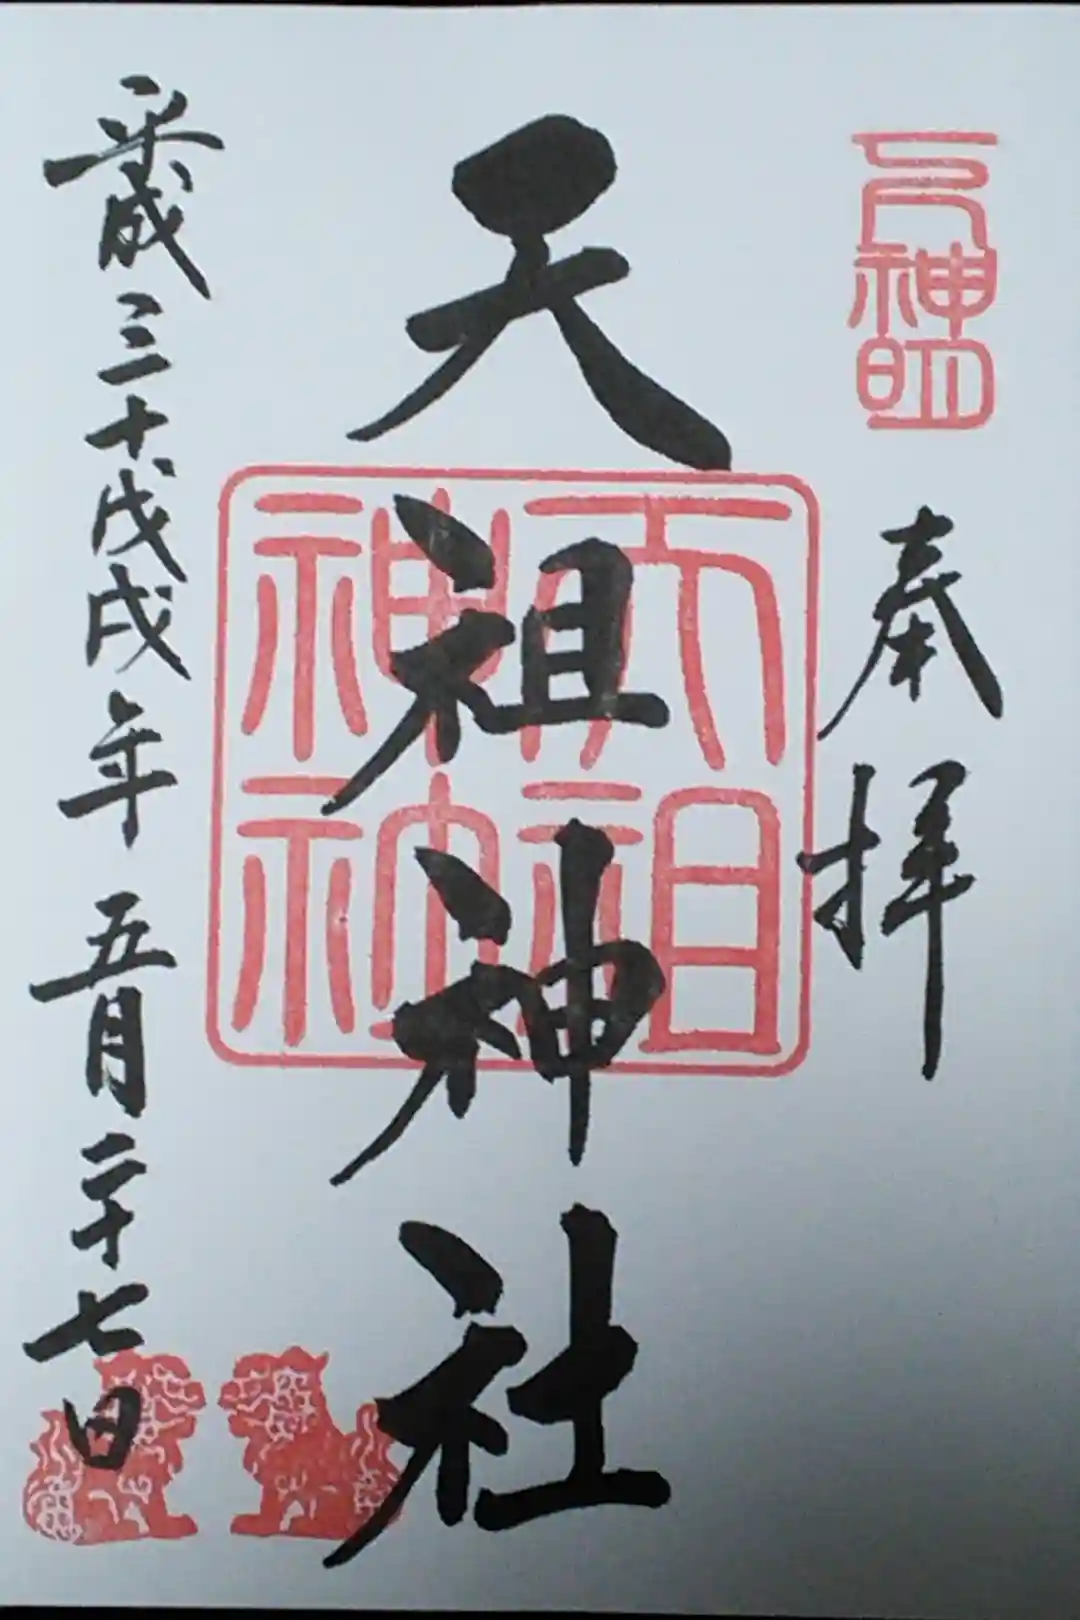 奉拝
天祖神社
平成三十戊戌年五月二十七日
天祖
神社